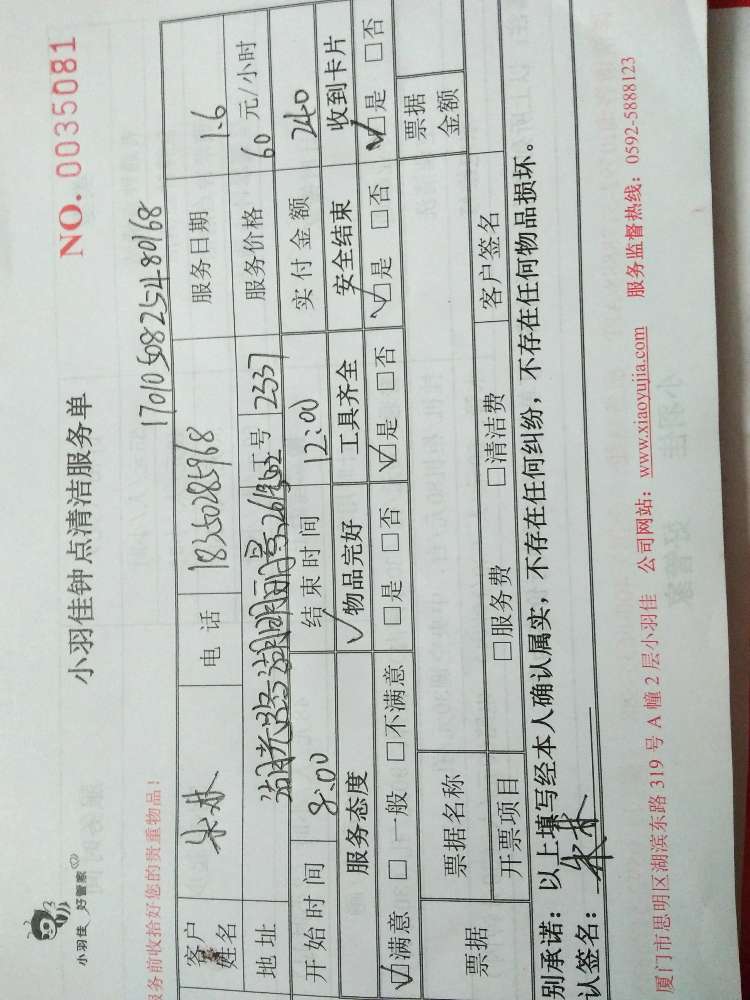 小羽佳 好管家
小羽佳钟点清洁服务单
NO. 0035081
服务前收拾好您的贵重物品!
17010508254480168
客户姓名 朱林 电话 18350285968 服务日期 1.6
地址 湖光路 湖明丽景 工号 2337 服务价格 60 元/小时
开始时间 8:00 结束时间 12:00 实付金额 240
服务态度 √物品完好 工具齐全 安全结束 收到卡片
√满意 □一般 □不满意 □是 □否 √是 □否 √□是 □否 √□是 □否
票据 票据名称 票据金额
开票项目 □服务费 □清洁费 客户签名
别承诺:以上填写经本人确认属实,不存在任何纠纷,不存在任何物品损坏。
认签名:朱林
厦门市思明区湖滨东路 319 号 A 幢 2 层小羽佳 公司网站:www.xiaoyujia.com 服务监督热线:0592-5888123